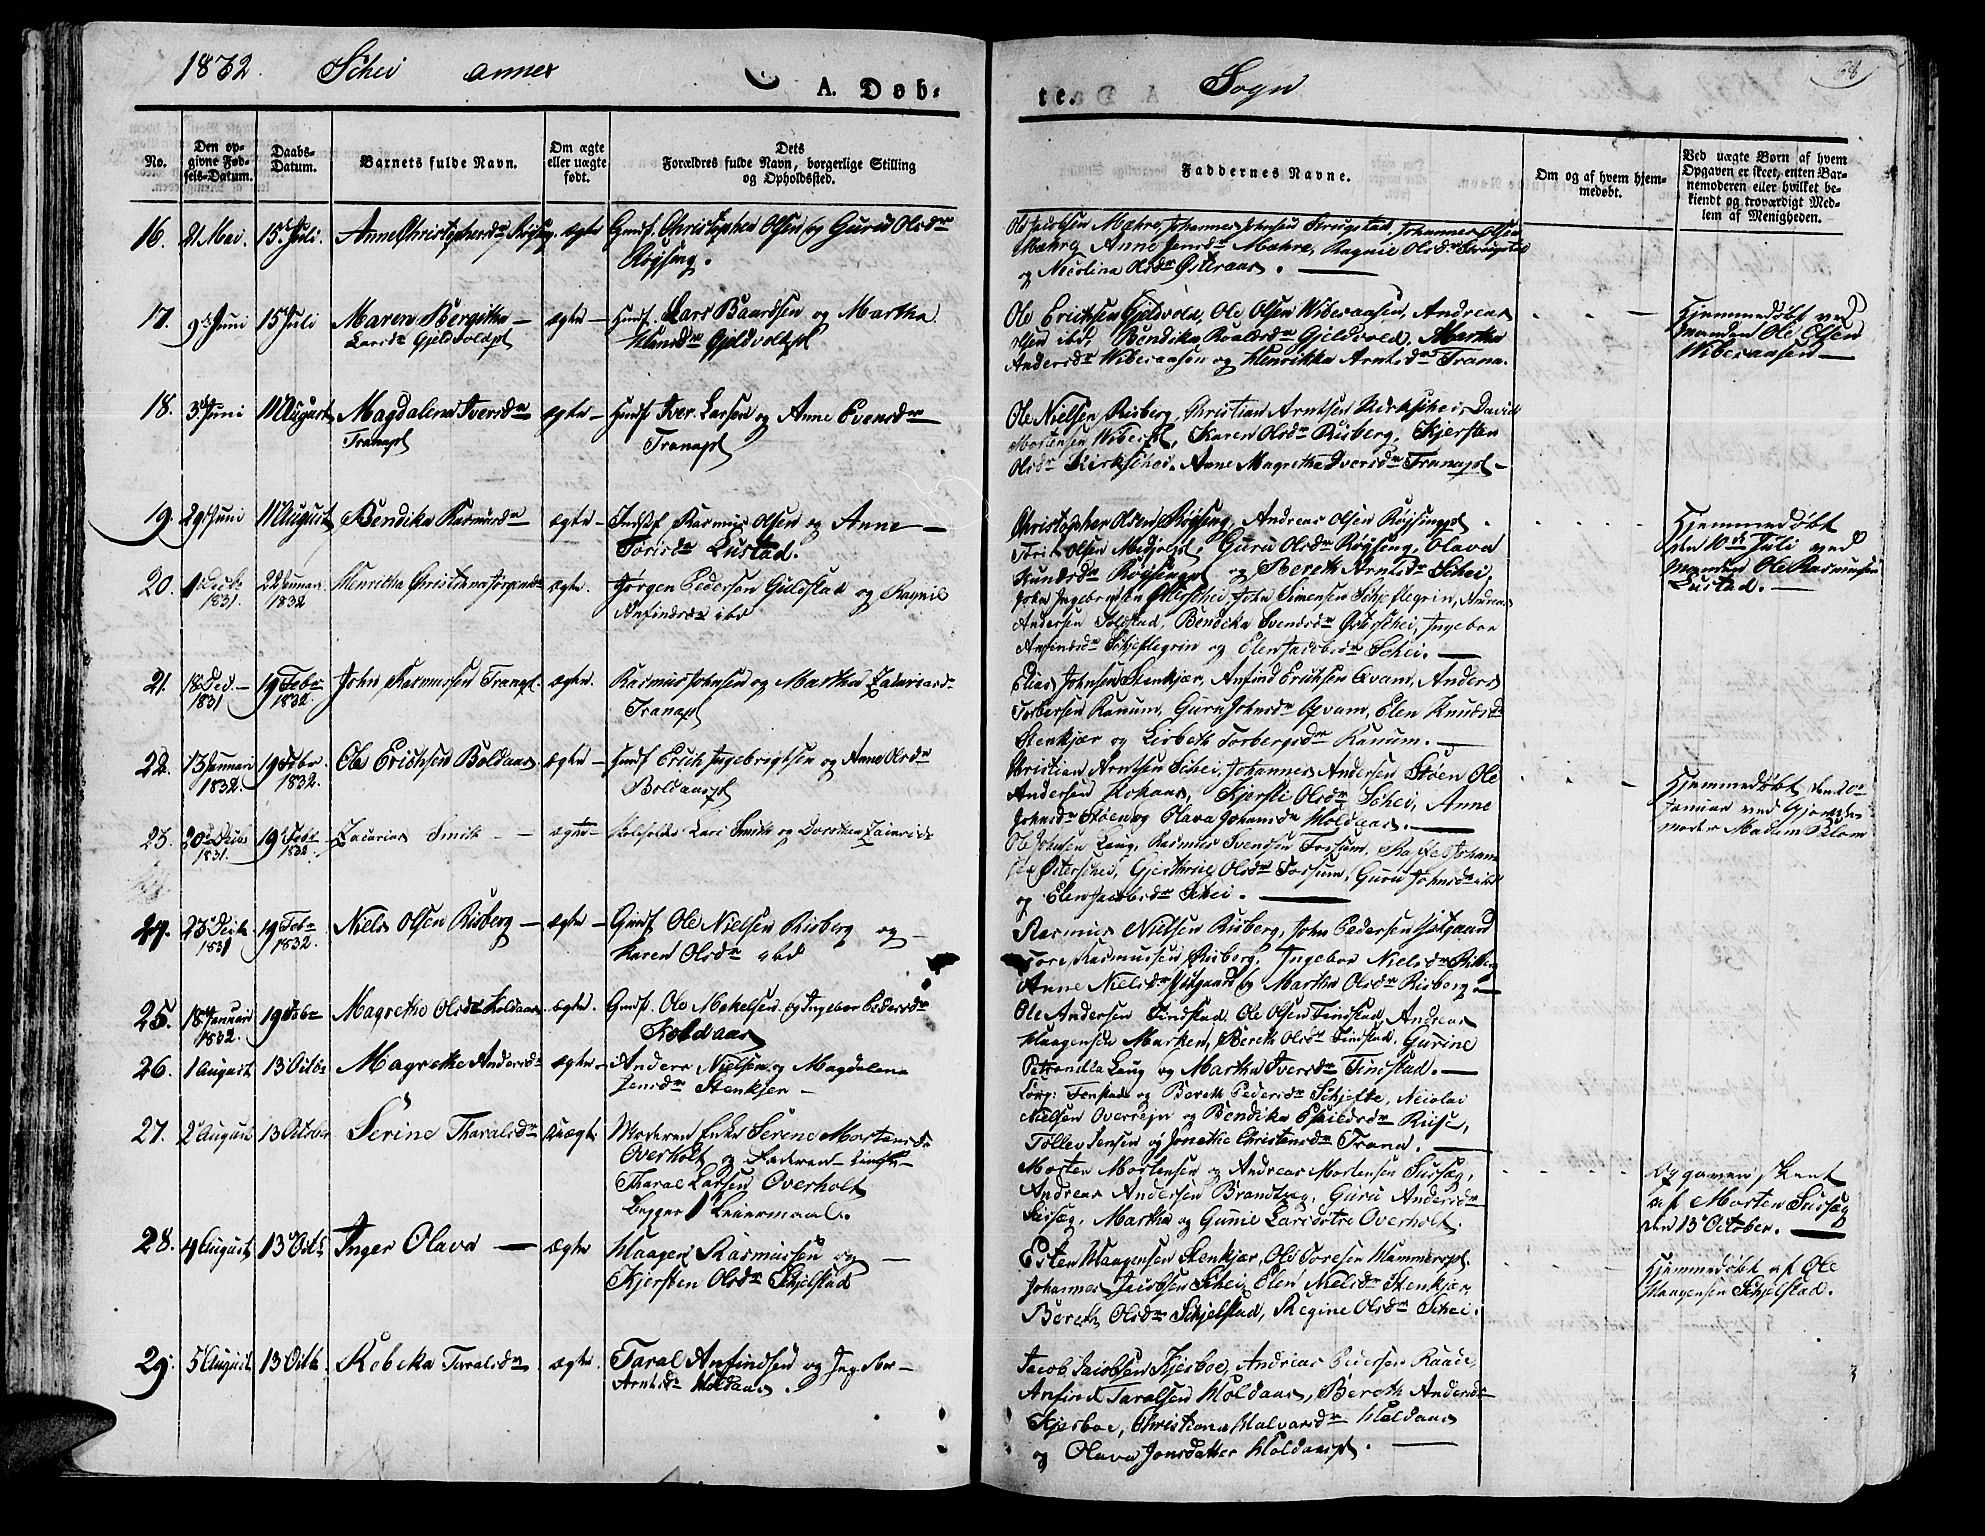 1832. Schei annex
A. Døb-
te.
Sogn
68
No.
Den op-
givne Fød-
sels-Datum.
Daabs-
Datum.
Barnets fulde Navn.
Om ægte
eller uægte
født.
Dets
Forældres fulde Navn, borgerlige Stilling
og Opholdssted.
Faddernes Navne.
Om og af hvem hjem-
medøbt.
Ved uægte Børn af hvem
Opgaven er skeet, enten Bar-
nemoderen eller hvilket be-
kiendt og troværdigt Med-
lem af Menigheden.
16. 21 Mai. 15 Juli. Anne Christophersdr Røising. ægte Gmd. Christopher Olsen og Guru Olsdr
Røysing.
Mæhre Anne Jensdr Mæhre, Ragnil Olsdr
og Nicolina Olsdr Østeraas.
17. 9 Juni 15 Juli Maren Bergitha ægte Huusf. Lars Baardsen og Martha
Larsdr Gjeldvoldpl Hansdr Gjeldvoldpl
Ole Erichsen Gjeldvold, Ole Olsen Wibesaasen, Andreas
Olsen ibd, Bendika Roaldsdr Gjeldvold, Martha
Andersdr Wibesaasen og Henrikka Arntsdr Trana.
Hjemmedøbt ved
Manden Ole Olsen
Wibesaasen
18. 3 Juni 11 August Magdalena Iversdr ægte Huusf. Iver Larsen og Anne Evensdr
Tranapl Tranapl
Ole Nielsen Risberg, Christian Arntsen Kirkschei, David
Mortensen Karen Olsdr Risberg, Kjersten
Olsdr Kirkschei, Anne Magretha Iversdr Tranapl
19. 29 Juni 11 August Bendika Rasmusdr ægte Indst. Rasmus Olsen og Anne
Torisdr Lustad.
Christopher Olsen Røysing, Andreas Olsen Røysingpl
Olsen Guru Olsdr Røysing, Olava
Knudsdr Røysingpl og Bereth Arntsdr Schei.
Hjemmedøbt
den 10de Juli ved
Manden Ole Rasmusen
Lustad.
20. 1 Decbr 22 Januar Henrikka Christiana Jørgensdr ægte. Jørgen Pedersen Guldstad og Ragnil
1831. 1832 Anfindsdr ibd
John Ingebrigtsen Østerschei, John Simensen Schjeflegrin, Andreas
Andersen Foldstad, Bendika Svendsdr Østerschei, Ingebor
Anfindsdr Schjeflegrin og Elen Jacobsdr Schei.
21. 18 Dec. 19 Febr John Rasmussen Tranapl. ægte. Rasmus Johnsen og Martha Zacariasdr
1831 1832. Tranapl
Elias Johnsen Stenkjær, Anfind Erichsen Qvam, Anders
Torbersen Ranum, Guru Johnsdr Qvam, Elen Knudsdr
Stenkjær og Lisbeth Torbergsdr Ranum.
22. 13 Januari 19 Febr. Ole Erichsen Boldaas. ægte Huusf. Erich Ingebrigtsen og Anne Olsdr
1832. 1832. Boldaaspl
Christian Arntsen Schei, Johannes Andersen Støen Ole
Andersen Kjersti Olsdr Schei, Anne
Johnsdr Støen og Olava Johansdr Moldaas.
Hjemmedøbt den 20de
Januar ved Gjorde-
moder Madam Blom
23. 20 Decbr 19 Febr Zacarias Smith ægte Lars Smith og Dorothea Zacariasdr
1831. 1832.
Ole Johnsen Laug, Rasmus Svendsen Forsum,
Østerschei, Gjerthrue Olsdr Forsum, Guru Johnsdr ibd
og Elen Jacobsdr Schei.
24. 23 Decbr 19 Febr Niels Olsen Risberg ægte Gmd. Ole Nielsen Risberg og
1831 1832. Karen Olsdr ibd
Rasmus Nielsen Risberg, John Pedersen
Tore Rasmussen Risberg, Ingebor Nielsdr Risberg
Anne Nielsdr og Martha Olsdr Risberg
25. 18 Januari 19 Febr Magretha Olsdr Koldaas. ægte. Gmd. Ole Mikelsen og Ingebor Pedersdr
1832. Koldaas
Ole Andersen Findstad, Ole Olsen Findstad, Andreas
Haagensen Marken, Bereth Olsdr Findstad, Gurine
Petronilla Laug og Martha Iversdr Findstad.
26. 1 August 13 Octbr Magrethe Andersdr ægte Anders Nielsen og Magdalena
Jensdr Stenksen
og Bereth Pedersdr Schjefte, Nicolai
Nielsen Overrein og Bendika Riise,
Tollev Jensen og Jonethe Christensdr Trana.
27. 2 August 13 October Serine Tharalsdr uægte. Moderen Enke Serene Mortensdr
Overholt og Faderen
Tharal Larsen Overholt
Begges 1te Leiermaal.
Morten Mortensen og Andreas Mortensen Sussæg,
Andreas Andersen Brandtzæg, Guru Andersdr
Sussæg, Martha og Gunil Larsdøtre Overholt.
Opgaven skeet
af Morten Sussæg
den 13 October.
28. 4 August 13 Octb Inger Olava ægte Haagen Rasmussen og
Kjersten Olsdr Schjelstad
Esten Haagensen Stenkjær, Ole Toresen Hammerspl.
Johannes Jacobsen Schei, Elen Nielsdr Stenkjær,
Bereth Olsdr Schjelstad, Regine Olsdr Schei.
Hjemmedøbt af Ole
Haagensen Schjelstad.
29. 5 August 13 Octb. Rebeka Taralsdr ægte. Taral Anfindsen og Ingebor
Arntsdr Moldaas.
Jacob Jacobsen Kjesboe, Andreas Pedersen Raade,
Anfind Taralsen Moldaas, Bereth Andersdr
Kjesboe, Christiana Halvarsdr Moldaas
og Olava Jonsdatter Moldaaspl.